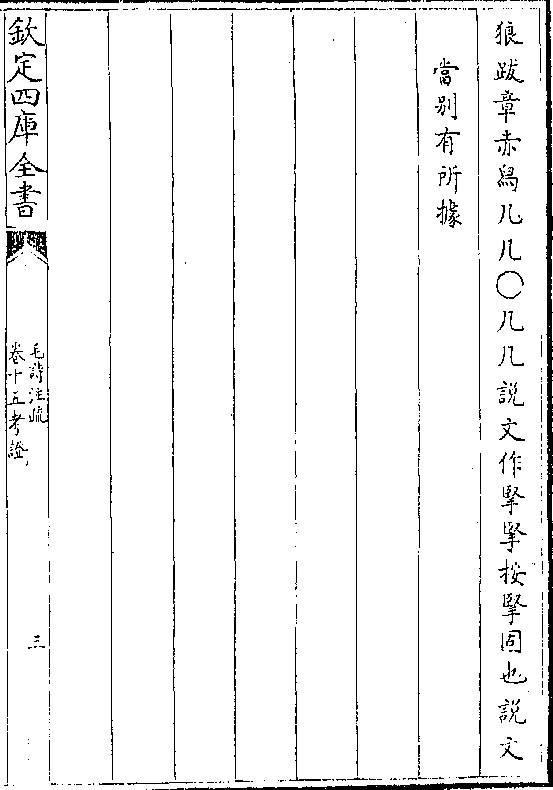 狼跋章赤舄几几〇几几説文作掔掔按掔固也説文
當别有所據
欽定四庫全書
毛詩注疏
卷十五考證
三